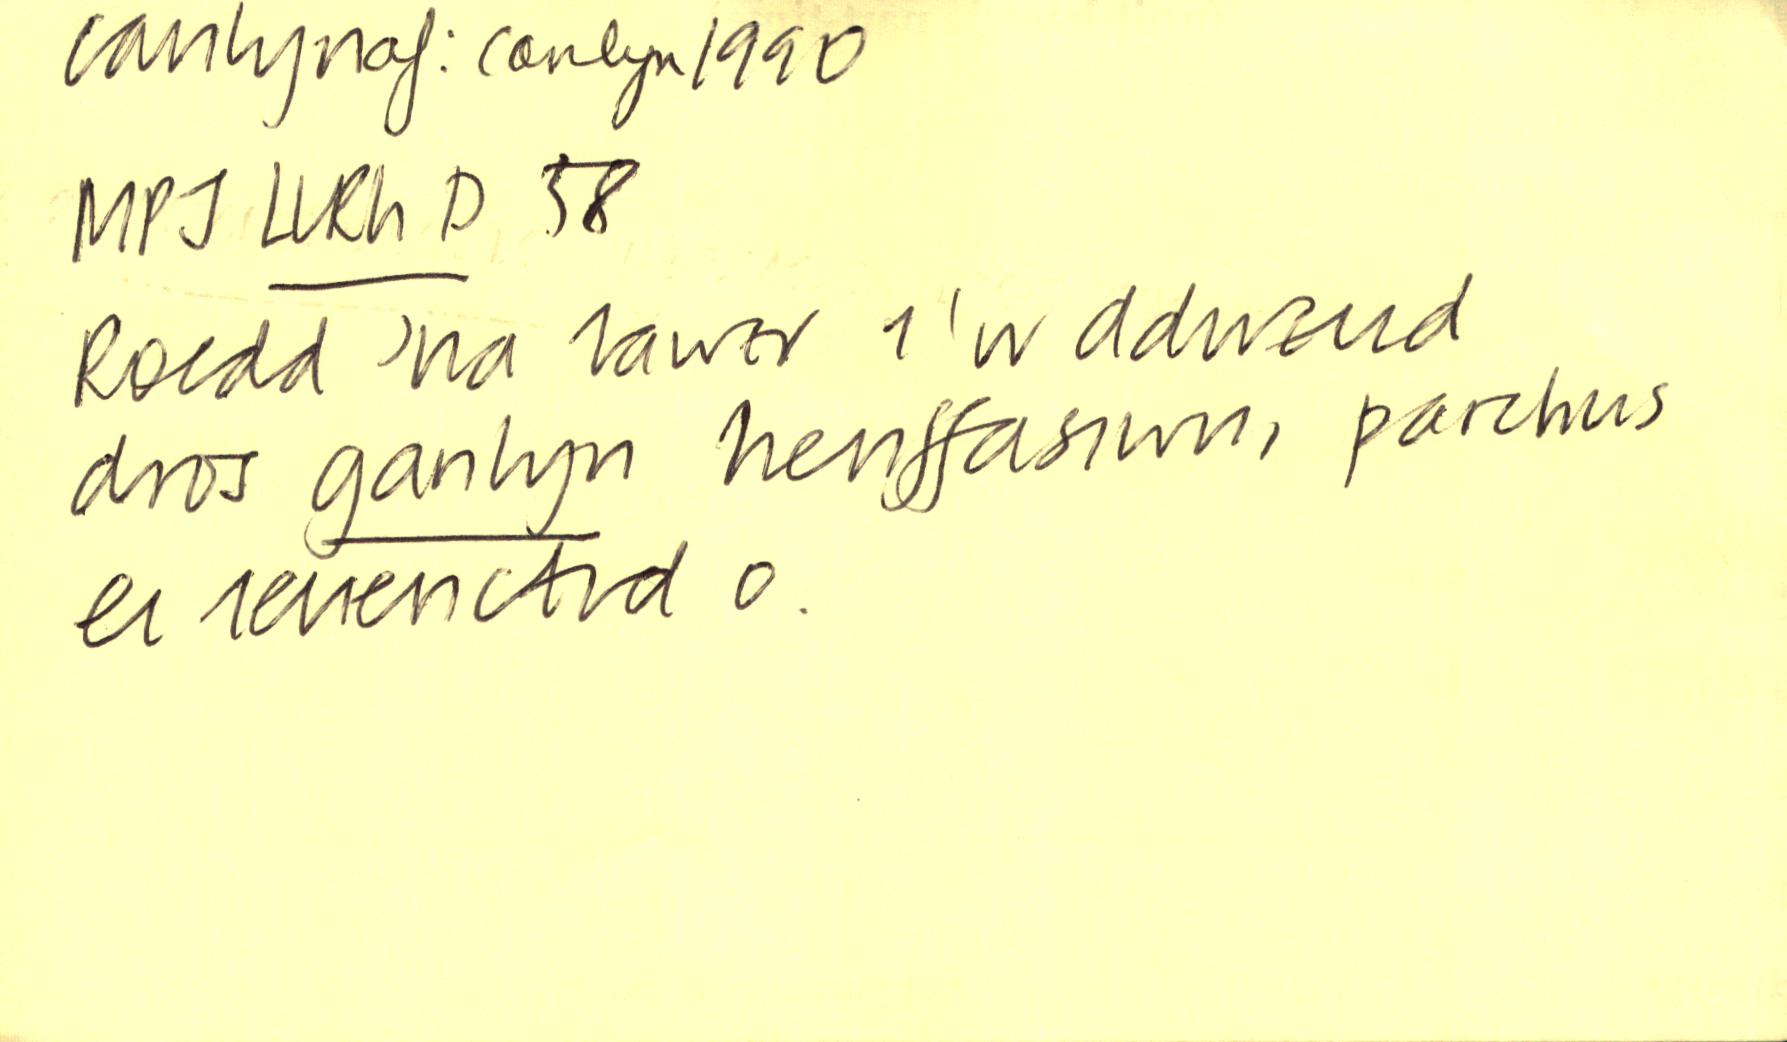 canlynaf: canlyn 1990
MPJ LlRh D 58
Roedd 'na lawer i'w ddweud
dros ganlyn henffasiwn, parchus
ei ieuenctid o.